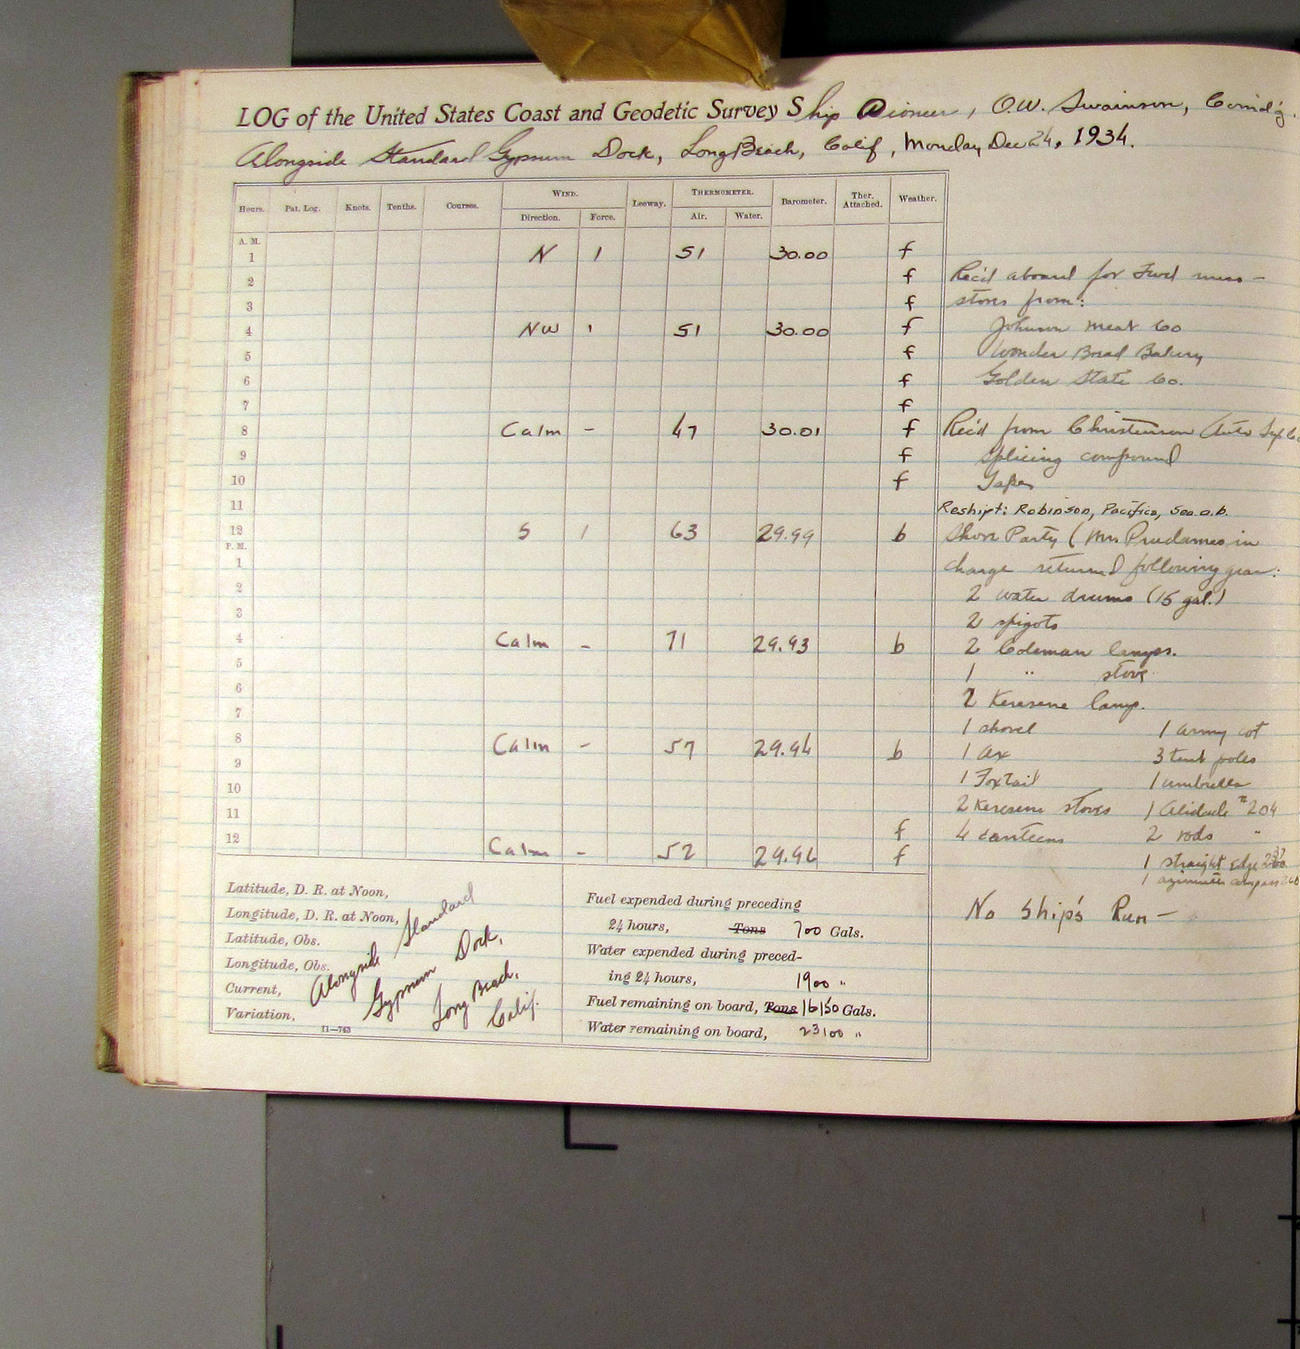 LOG of the United States Coast and Geodetic Survey Ship Pioneer, O.W. Swainson, Com'd'g.
Alongside Standard Gypsum Dock, Long Beach, Calif, Monday Dec 24, 1934.
Hours. Pat. Log. Knots. Tenths. Courses. WIND. Direction. Force. Leeway. THERMOMETER. Air. Water. Barometer. Ther. Attached. Weather.
A. M.
1 N 1 51 30.00 f
2 f Rec'd aboard for Fwd mess-
3 f stores from:
4 NW 1 51 30.00 f Johnson Meat Co
5 f Wonder Bread Bakery
6 f Golden State Co.
7 f
8 Calm - 47 30.01 f Rec'd from Christenson Auto
9 f Splicing compound
10 f Tape
11 Reshipt: Robinson, Pacifico, Sea.a.b.
12 S 1 63 29.99 b Shore Party (Mr. in
P. M.
1 charge returned following gear:
2 2 water drums (15 gal.)
3 2 spigots
4 Calm - 71 29.93 b 2 Coleman lamps.
5 1 " stove
6 2 Keresene lamp.
7 1 shovel 1 army cot
8 Calm - 57 29.94 b 1 ax 3 tent poles
9 1 Foxtail 1 umbrella
10 2 Keresene stoves 1 Alidade #204
11 f 4 canteens 2 rods "
12 Calm - 52 29.96 f 1 straight edge
1 azimuth compass
No Ship's Run-
Latitude, D. R. at Noon,
Longitude, D. R. at Noon,
Latitude, Obs.
Longitude, Obs.
Current,
Variation,
Alongside Standard
Gypsum Dock,
Long Beach,
Calif.
11—763
Fuel expended during preceding
24 hours, Tons 700 Gals.
Water expended during preced-
ing 24 hours, 1900 "
Fuel remaining on board, Tons 16150 Gals.
Water remaining on board, 23100 "